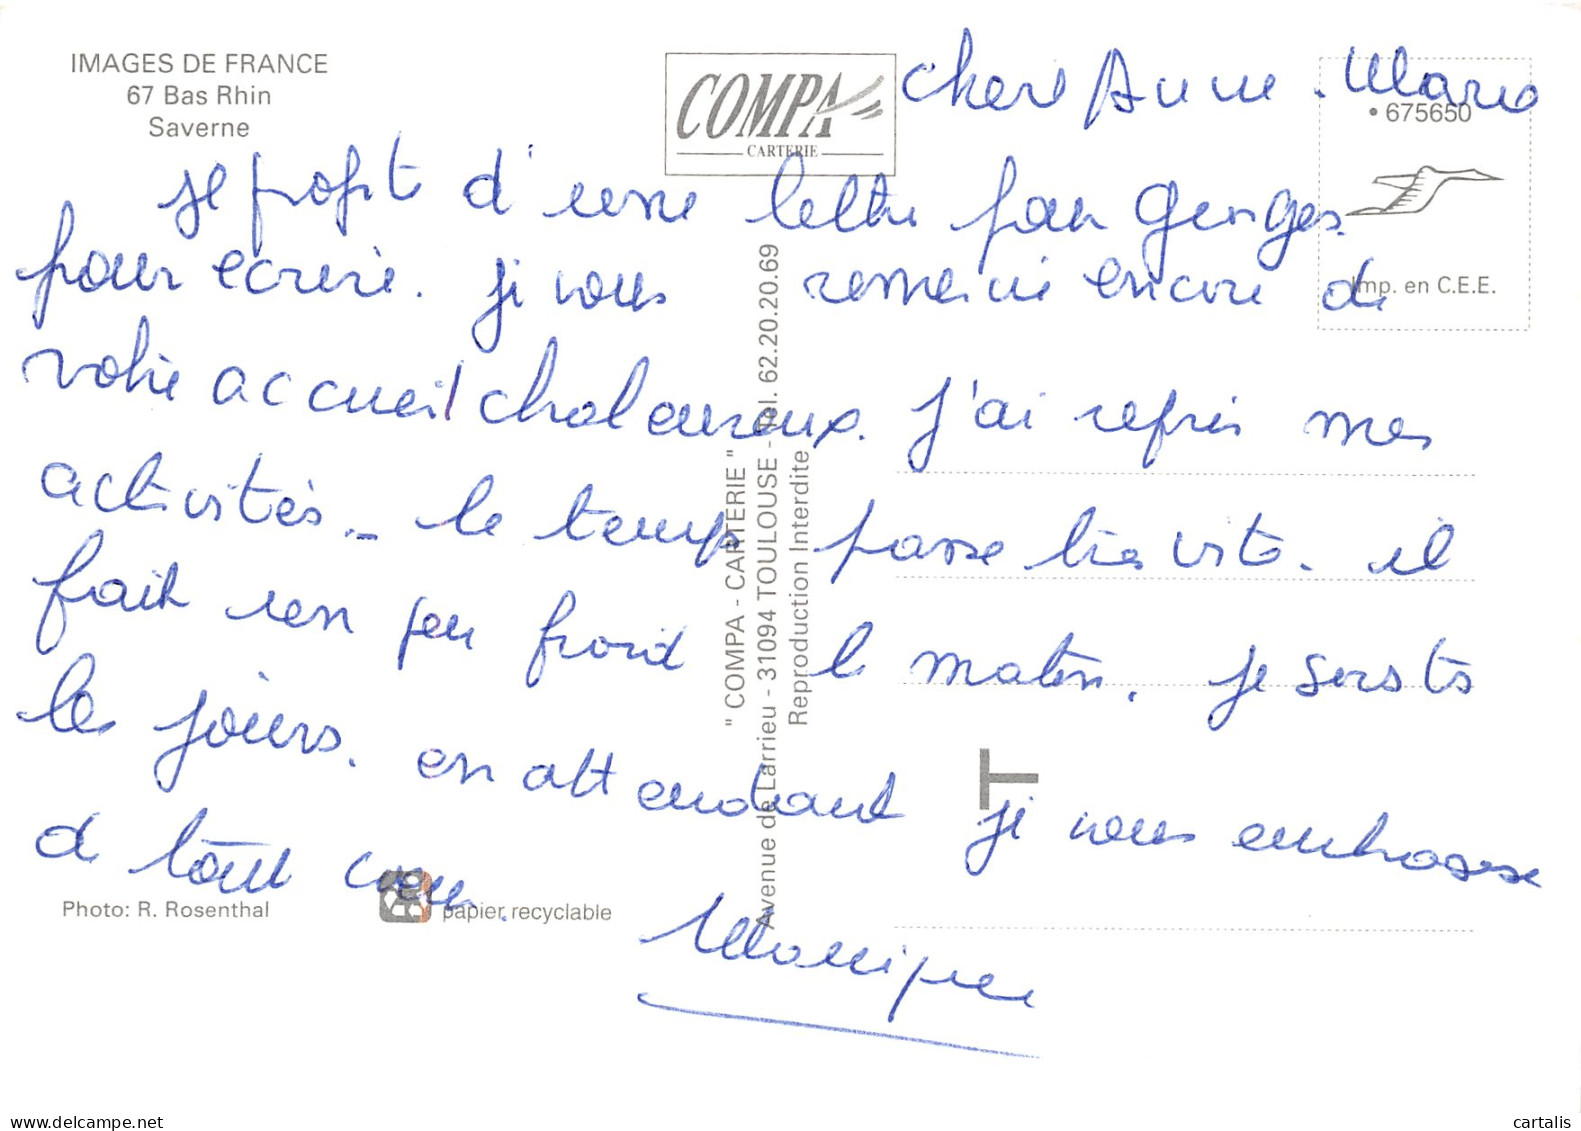 IMAGES DE FRANCE
67 Bas Rhin
Saverne
COMPA
CARTERIE
• 675650
Imp. en C.E.E.
Chere Anne-Marie
Je profite d'une lettre pour Georges
pour ecrire. Je vous remercie encore de
votre accueil chaleureux. J'ai repris mes
activités. le temps passe très vite. il
fait un peu froid le matin. Je sors ts
les jours. en attendant je vous embrasse
de tout coeur.
Monique
" COMPA - CARTERIE "
Avenue de Larrieu - 31094 TOULOUSE - Tél. 62.20.20.69
Reproduction Interdite
T
Photo: R. Rosenthal
papier recyclable
cartalis
www.delcampe.net